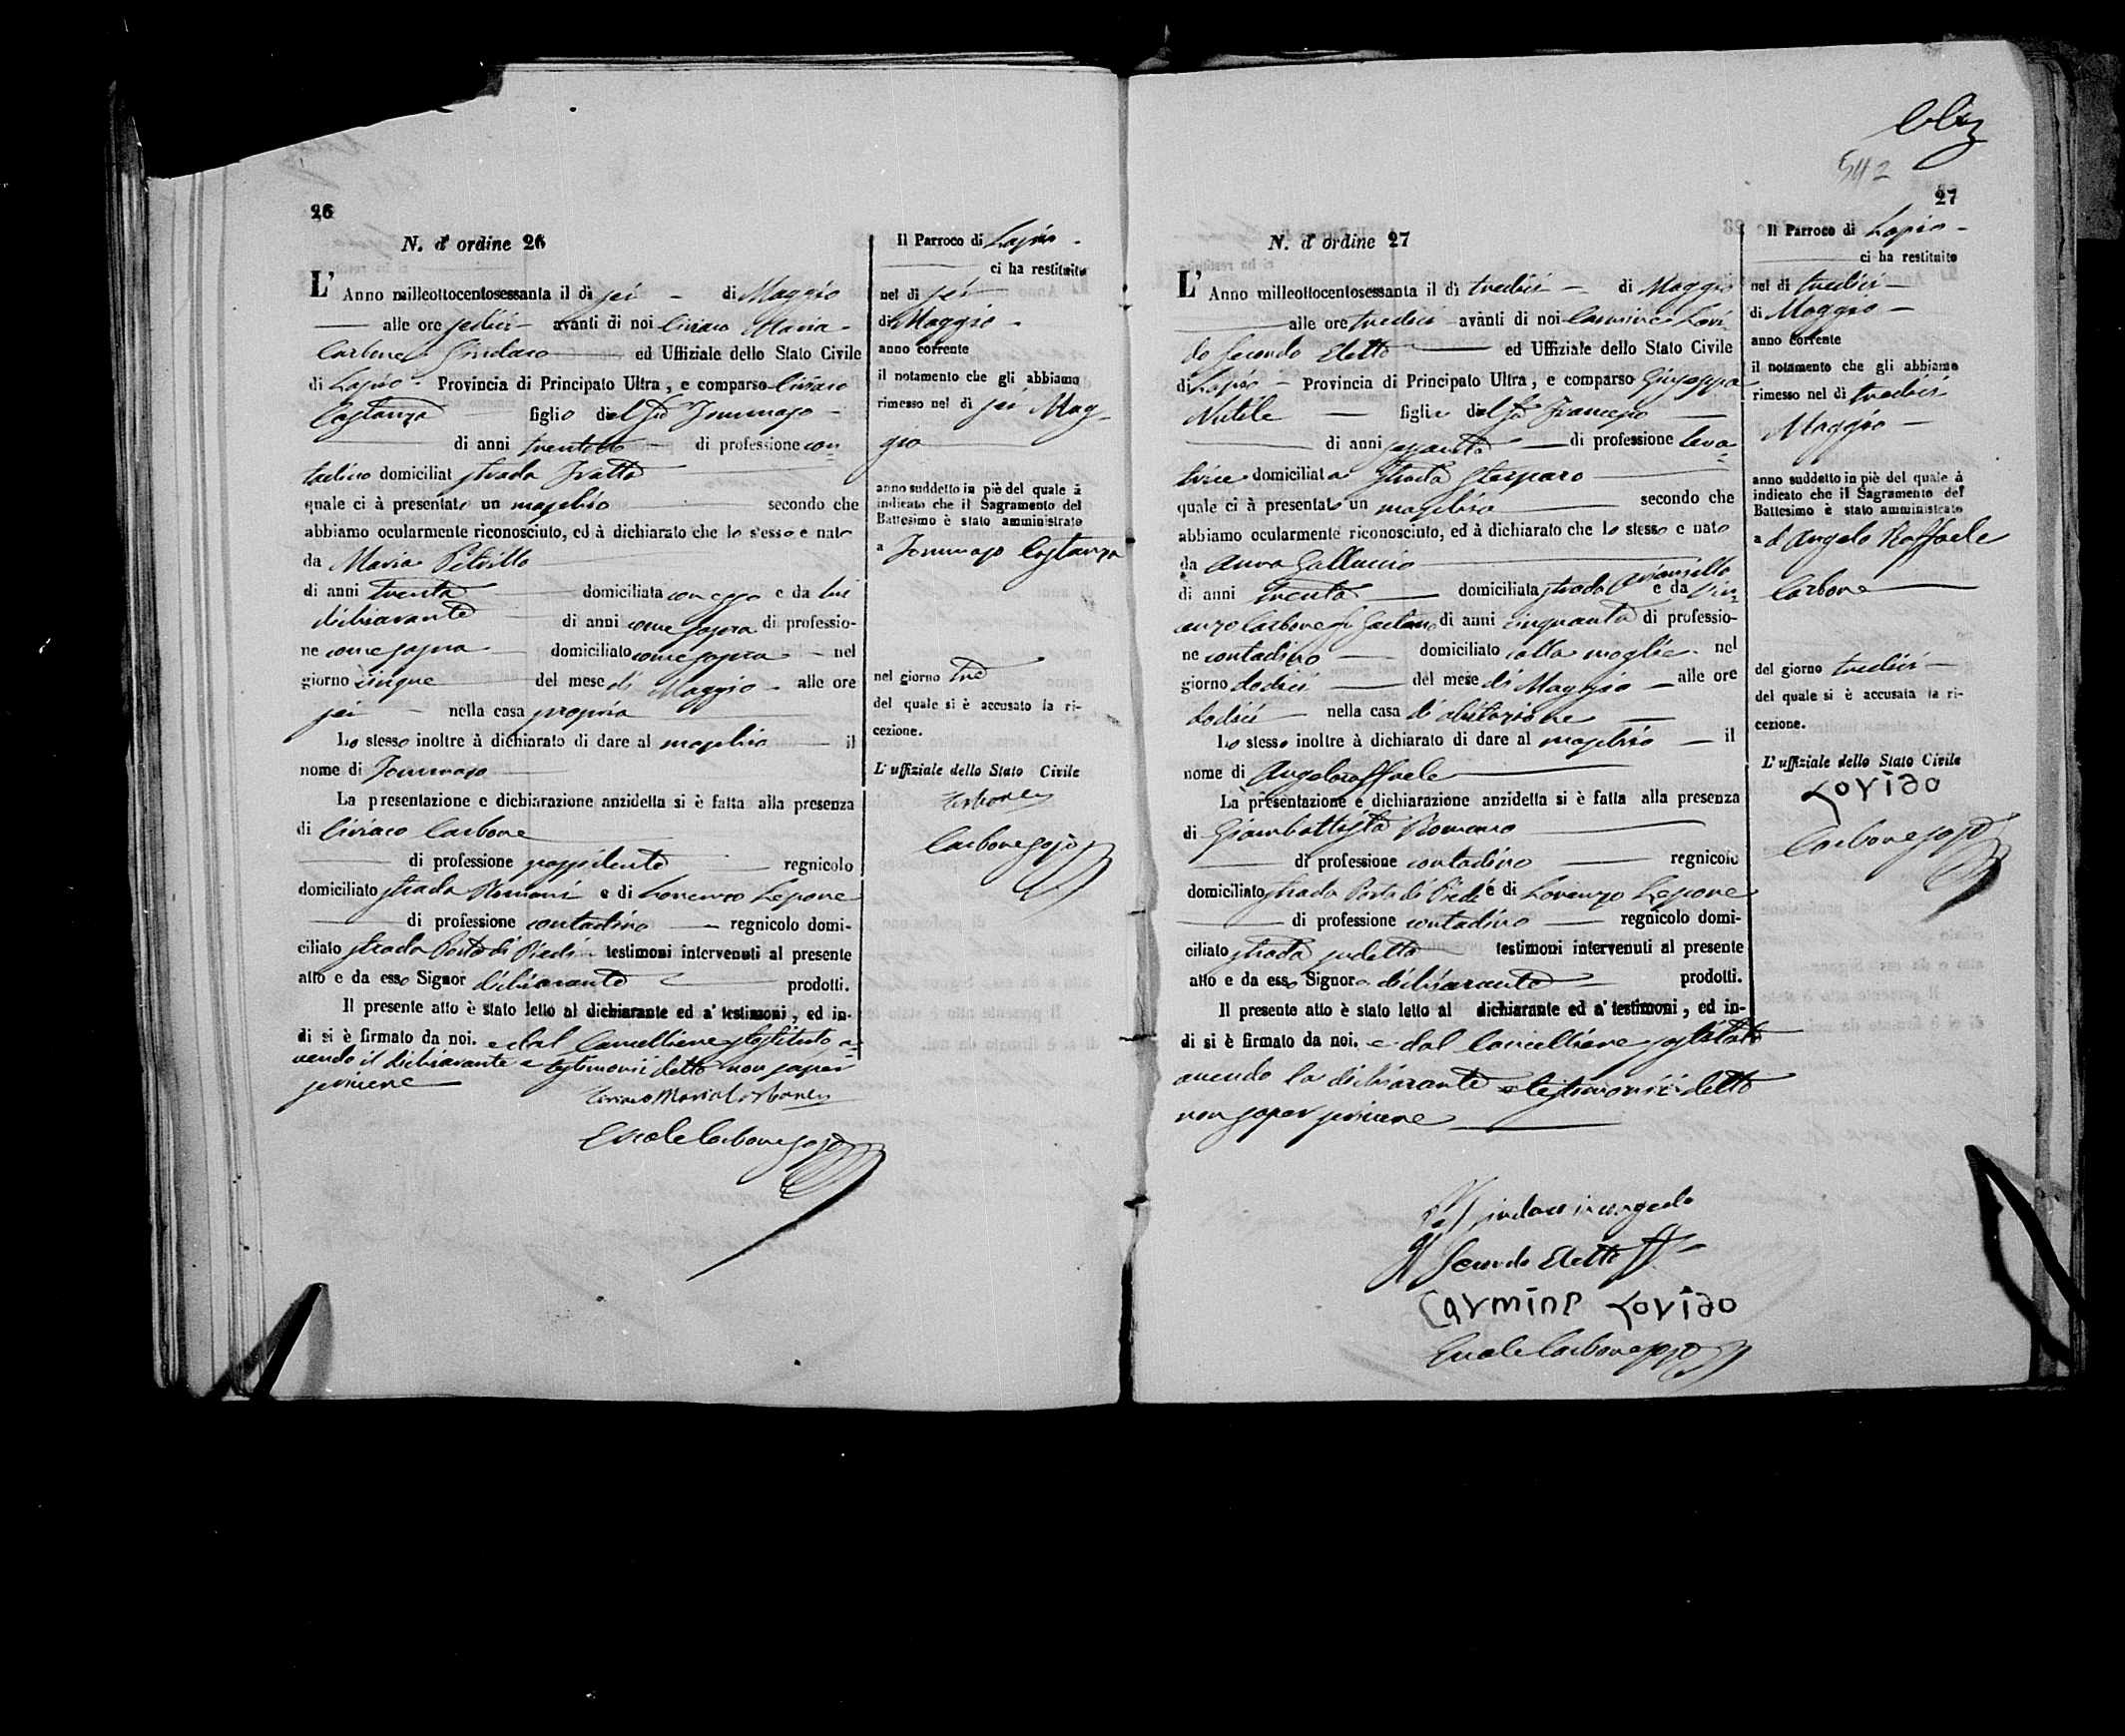 26
N. d' ordine 26
L' Anno milleottocentosessanta il dì sei di Maggio
alle ore sedici avanti di noi Ciriaco Maria
Carbone Sindaco ed Uffiziale dello Stato Civile
di Lapio Provincia di Principato Ultra, e comparso Ciriaco
Costanza figlio del fu Tommaso
di anni trentotto di professione con=
tadino domiciliat strada
quale ci à presentato un maschio secondo che
abbiamo ocularmente riconosciuto, ed à dichiarato che lo stesso e nato
da Maria Petrillo
di anni trenta domiciliata con esso e da lui
dichiarante di anni come sopra di professio-
ne come sopra domiciliato come sopra nel
giorno cinque del mese di Maggio alle ore
sei nella casa propria
Lo stesso inoltre à dichiarato di dare al maschio il
nome di Tommaso
La presentazione e dichiarazione anzidetta si è fatta alla presenza
di Ciriaco Carbone
di professione possidente regnicolo
domiciliato strada Romani e di Lorenzo Lepone
di professione contadino regnicolo domi-
ciliato strada Porta di Piedi testimoni intervenuti al presente
atto e da esso Signor dichiarante prodotti.
Il presente atto è stato letto al dichiarante ed a' testimoni, ed in-
di si è firmato da noi. e dal Cancelliere sostituto, a=
vendo il dichiarante e testimonii detto non saper
scrivere
Ciriaco Maria Carbone
Ercole Carbone sosto
Il Parroco di Lapio
ci ha restituito
nel dì sei
di Maggio
anno corrente
il notamento che gli abbiamo
rimesso nel dì sei Mag-
gio
anno suddetto in piè del quale à
indicato che il Sagramento del
Battesimo è stato amministrato
a Tommaso Costanza
nel giorno
del quale si è accusato la ri-
cezione.
L' uffiziale dello Stato Civile
Carbone
Carbone sosto
542
27
N. d' ordine 27
L' Anno milleottocentosessanta il dì tredici di Maggio
alle ore tredici avanti di noi Carmine Lovi-
do Secondo Eletto ed Uffiziale dello Stato Civile
di Lapio Provincia di Principato Ultra, e comparso Giuseppa
Nutile figlia del fu Francesco
di anni sessanta di professione leva=
trice domiciliata strada
quale ci à presentato un maschio secondo che
abbiamo ocularmente riconosciuto, ed à dichiarato che lo stesso e nato
da Anna Galluccio
di anni trenta domiciliata strada e da Vin=
cenzo Carbone fu Gaetano di anni cinquanta di professio-
ne contadino domiciliato colla moglie nel
giorno dodici del mese di Maggio alle ore
dodici nella casa di abitazione
Lo stesso inoltre à dichiarato di dare al maschio il
nome di Angeloraffaele
La presentazione e dichiarazione anzidetta si è fatta alla presenza
di Giambattista Romano
di professione contadino regnicolo
domiciliato strada Porta di Piedi e di Lorenzo Lepone
di professione contadino regnicolo domi-
ciliato strada sudetta testimoni intervenuti al presente
atto e da esso Signora dichiarante prodotti.
Il presente atto è stato letto al dichiarante ed a' testimoni, ed in-
di si è firmato da noi. e dal Cancelliere sostituto
avendo la dichiarante e testimonii detto
non saper scrivere
Pel Sindaco in congedo
Il Secondo Eletto ff
Carmine Lovido
Ercole Carbone sosto
Il Parroco di Lapio
ci ha restituito
nel dì tredici
di Maggio
anno corrente
il notamento che gli abbiamo
rimesso nel dì tredici
Maggio
anno suddetto in piè del quale à
indicato che il Sagramento del
Battesimo è stato amministrato
a d Angelo Raffaele
Carbone
del giorno tredici
del quale si è accusata la ri-
cezione.
L' uffiziale dello Stato Civile
Lovido
Carbone sosto